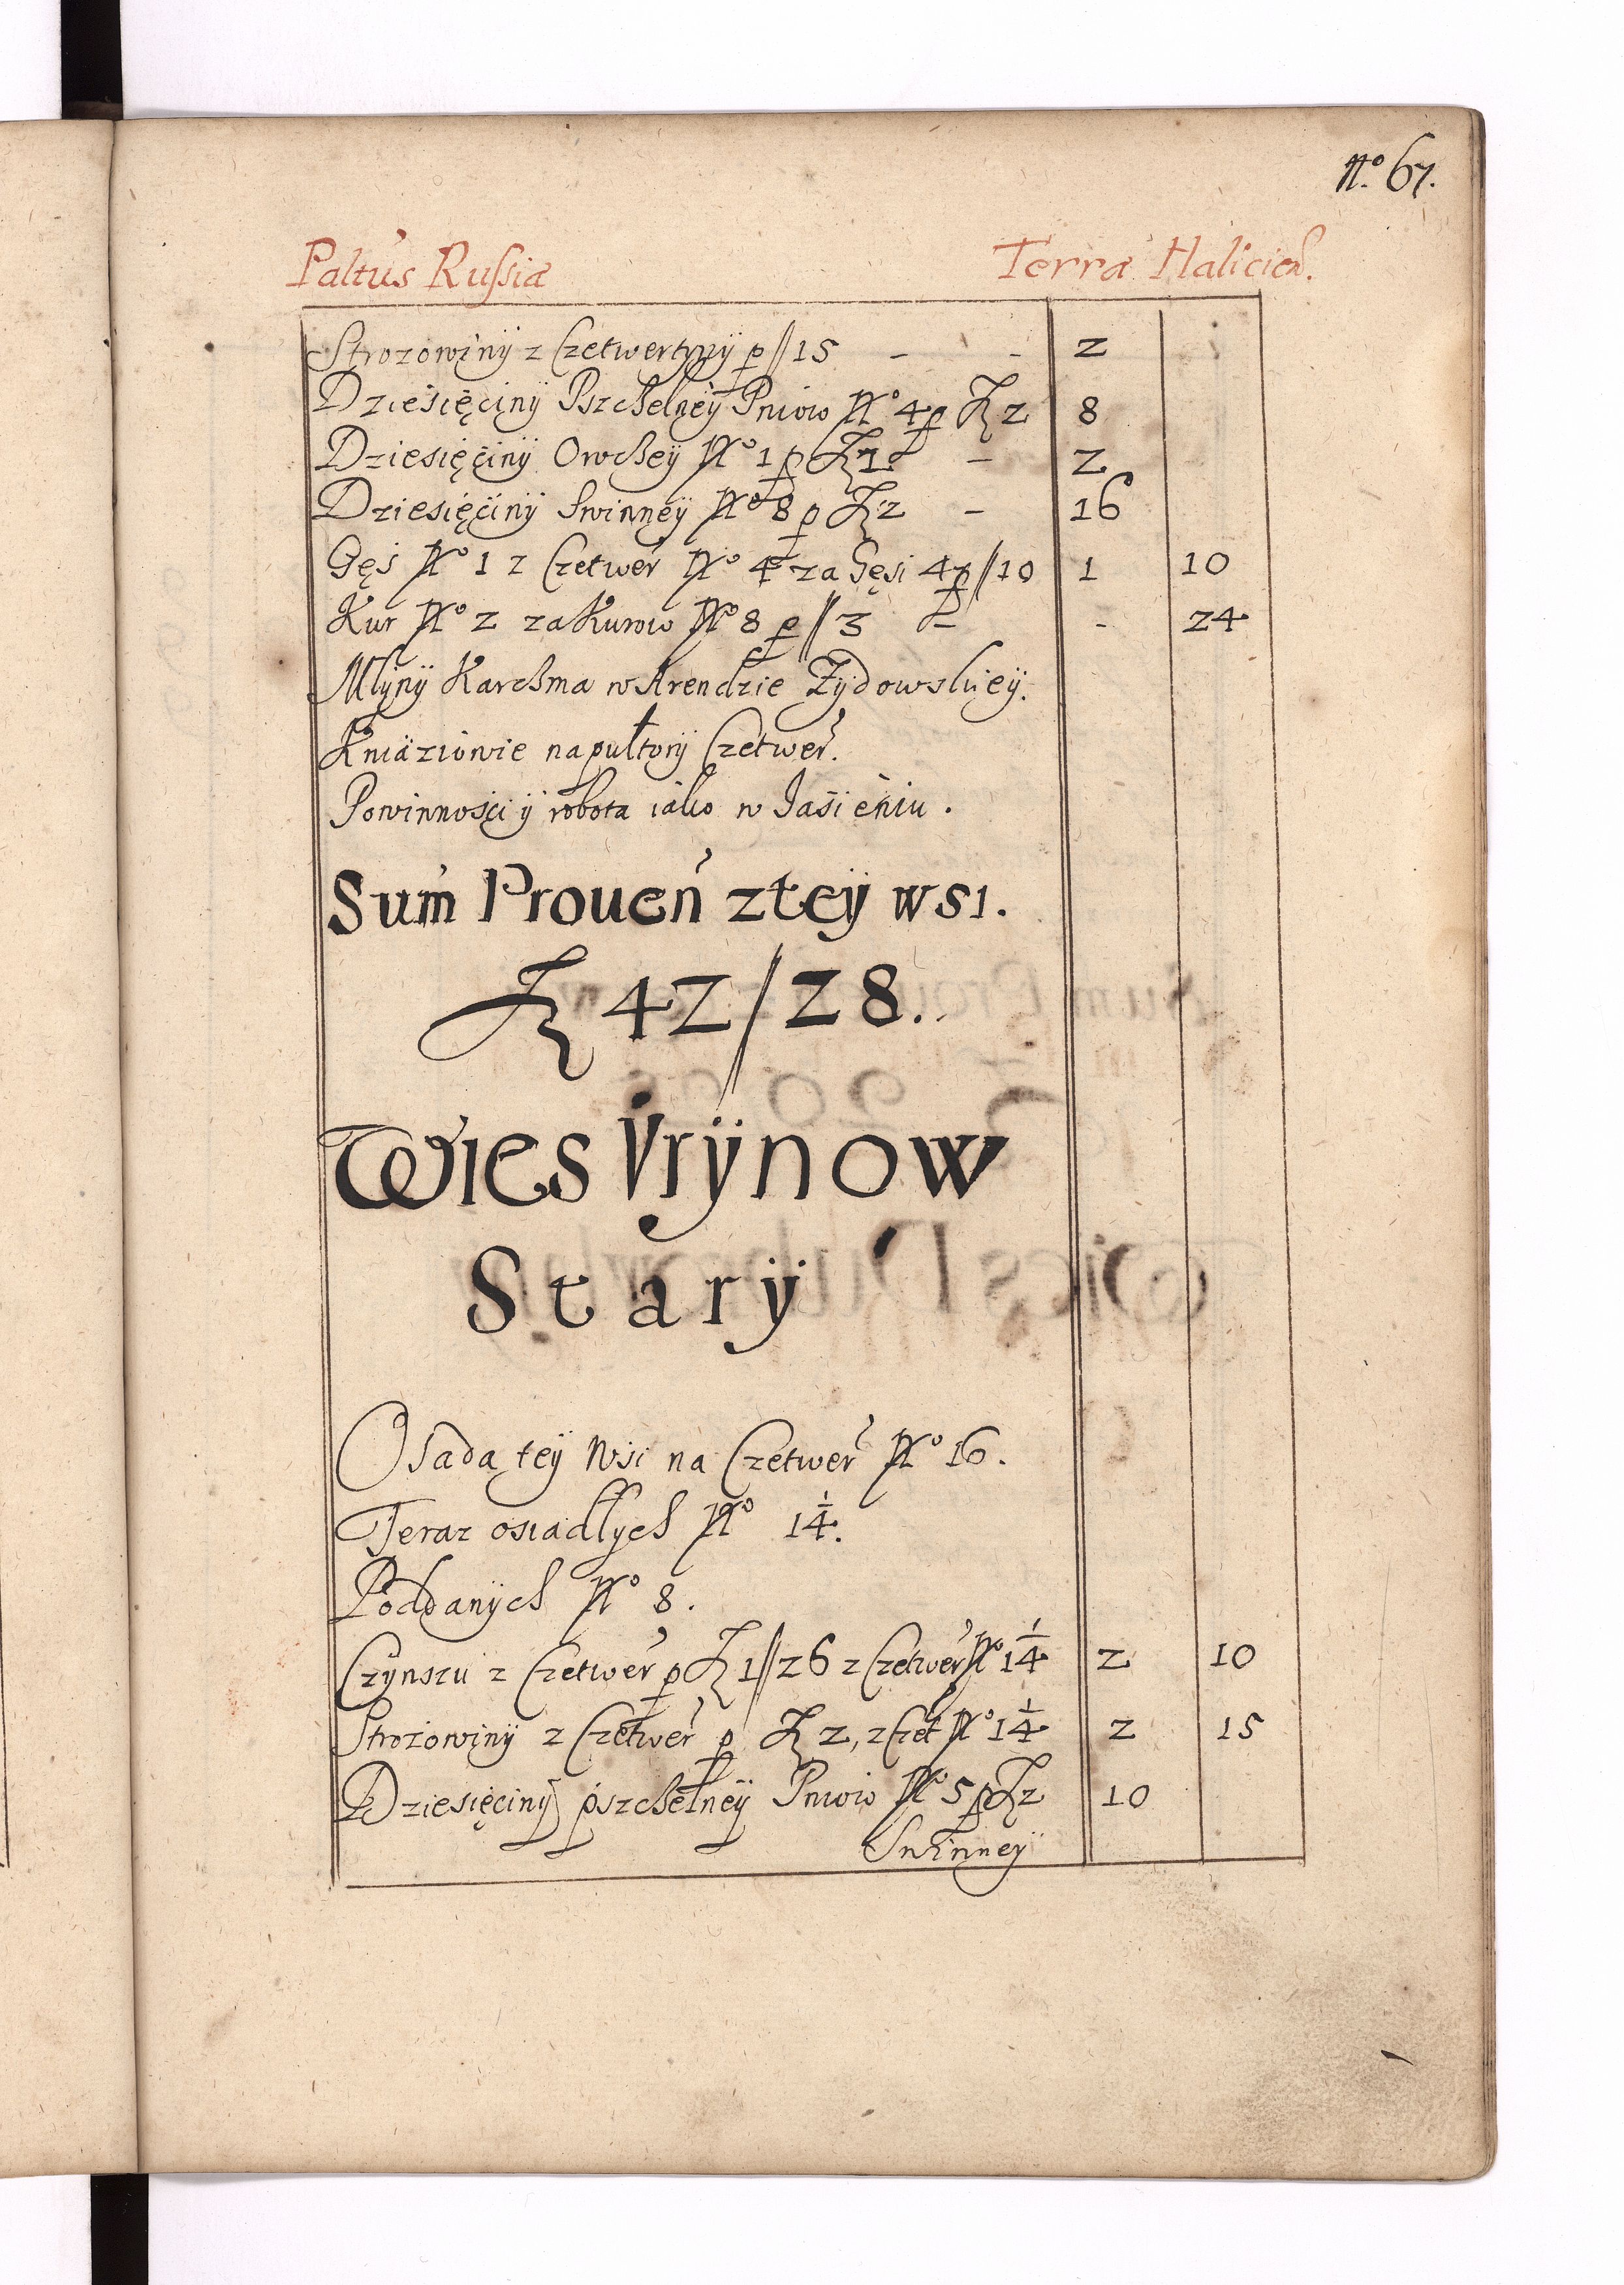 No. 67.
Paltus Russiæ Terræ Halicien.
Strozowiny z Czetwertyny p // 15 - - 2
Dziesięciny Pszchelney Pniow No 4 p Zł 2 8
Dziesięciny Owchey No 1 p Zł 1 - 2
Dziesięciny Swinney No 8 p Zł 2 - 16
Gęś No 1 z Czetwer No 4 za Gęsi 4 p // 10 1 10
Kur No 2 za Kurow No 8 p // 3 - - 24
Młyny Karchma w Arendzie Żydowskiey.
Kniaziowie na pułtory Czetwer.
Powinności y robota iako w Jasieniu.
Sum Prouen z tey wsi.
Zł 42 // 28.
Wies Vrynow
Stary
Osada tey Wsi na Czetwer No 16.
Teraz osiadłych No 1 1/4.
Poddanych No 8.
Czynszu z Czetwer p Zł 1 // 26 z Czetwer No 1 1/4 2 10
Strozowiny z Czetwer p Zł 2, z Czet No 1 1/4 2 15
Dziesięciny pszchelney Pniow No 5 p Zł 2 10
Swinney